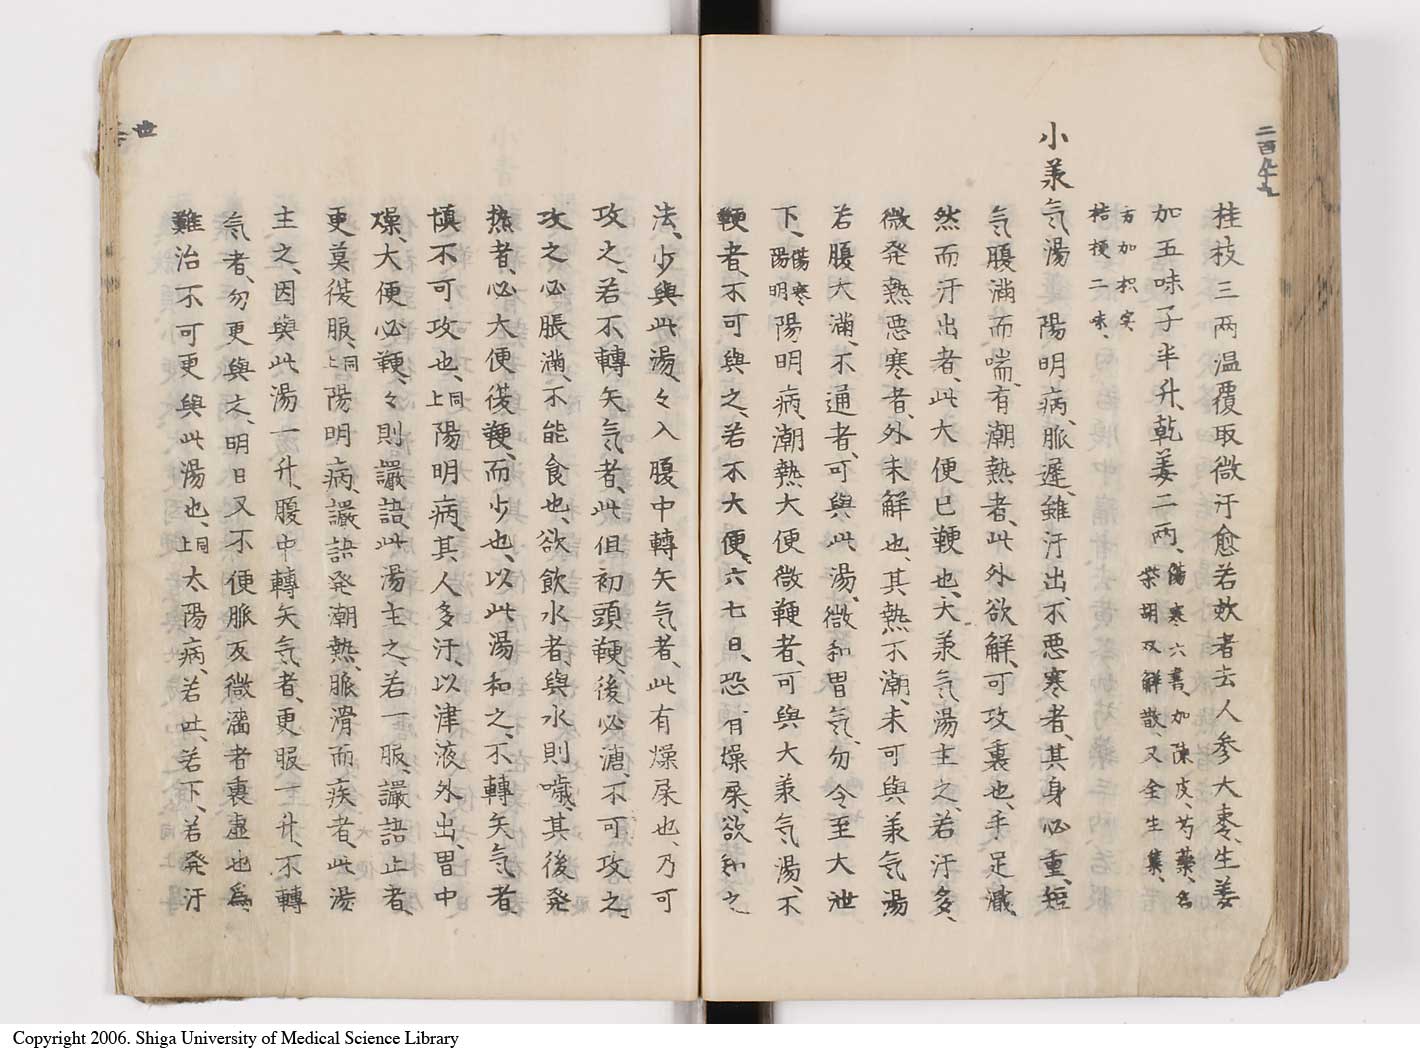 桂枝三両温覆取微汗愈若欬者去人参大棗、生姜
加五味子半升、乾姜二両、傷寒六書、加陳皮、芍薬、名柴胡双解散、又全生集、
方加枳実桔梗二味、
小羕气湯 陽明病、脈遅、雖汗出、不悪寒者、其身必重、短
气腹満而喘、有潮熱者、此外欲解、可攻裏也、手足濈
然而汗出者、此大便已鞕也、大羕气湯主之、若汗多、
微発熱悪寒者、外未解也、其熱不潮、未可與羕气湯
若腹大満、不通者、可與此湯、微和胃气、勿令至大泄
下、傷寒陽明陽明病、潮熱大便微鞕者、可與大羕气湯、不
鞕者、不可與之、若不大便、六七日、恐有燥屎、欲知之
法、少與此湯、々入腹中轉矢气者、此有燥屎也、乃可
攻之、若不轉矢气者、此但初頭鞕、後必溏、不可攻之、
攻之必脹満、不能食也、欲飲水者、與水則噦、其後発
热者、必大便復鞕、而少也、以此湯和之、不轉矢气、者、
慎不可攻也、同上陽明病、其人多汗、以津液外出、胃中
燥、大便必鞕、々則讝語、此湯主之、若一服、讝語止者、
更莫復服、同上陽明病、讝語発潮熱、脈滑而疾者、此湯
主之、因與此湯一升、腹中轉矢气者、更服一升、不轉
气者、勿更與之、明日又不便脈反微濇者裏虚也為
難治不可更與此湯也、同上太陽病、若吐、若下、若発汗